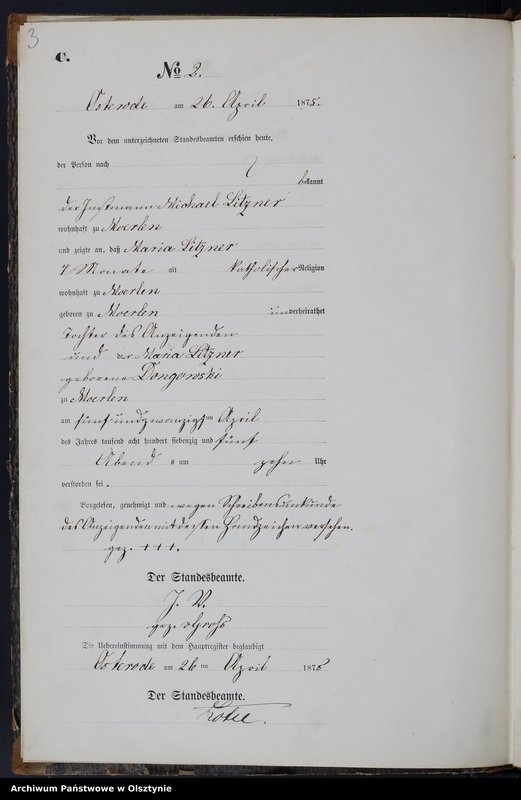 3
C.
No 2.
Osterode am 26. April 1875.
Vor dem unterzeichneten Standesbeamten erschien heute,
der Person nach
bekannt
der Instmann Michael Litzner
wohnhaft zu Moerlen
und zeigte an, daß Maria Litzner
7 Monate alt katholischer Religion
wohnhaft zu Moerlen
geboren zu Moerlen unverheirathet
Tochter des Anzeigenden
und der Maria Litzner
geborene Dongowski
zu Moerlen
am fünf und zwanzigsten April
des Jahres tausend acht hundert siebenzig und fünf
Abends um zehn Uhr
verstorben sei.
Vorgelesen, genehmigt und wegen Schreibensunkunde
des Anzeigenden mit dessen Handzeichen versehen.
gez. +++.
Der Standesbeamte.
J. V.
gez. Groß
Die Uebereinstimmung mit dem Hauptregister beglaubigt
Osterode am 26 ten April 1875
Der Standesbeamte.
Archiwum Państwowe w Olsztynie